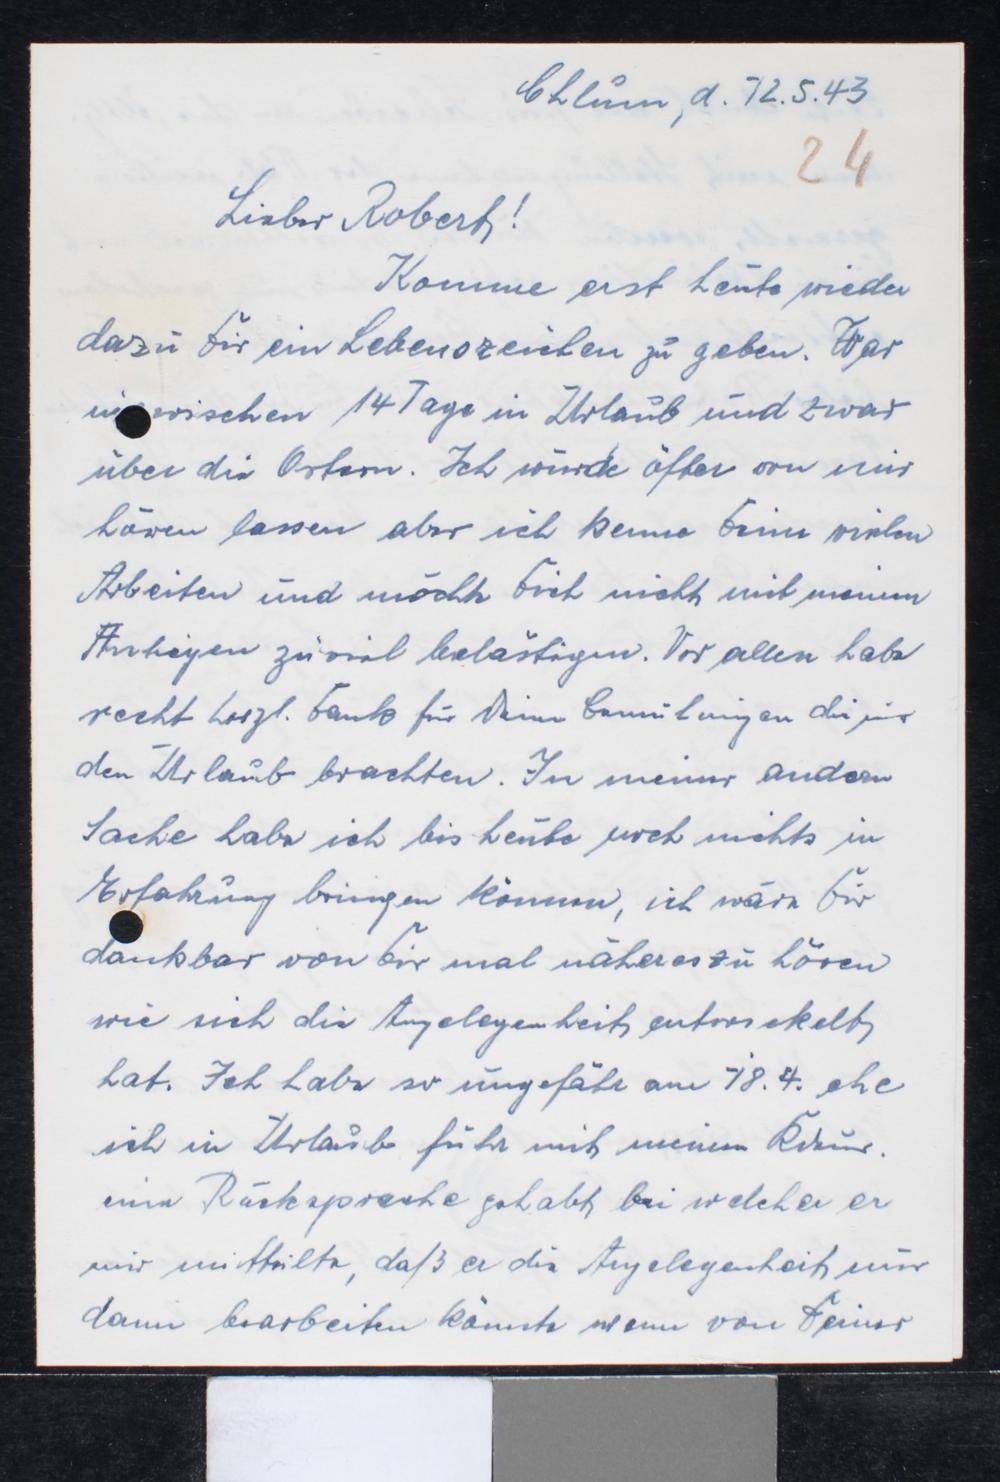 Chlum, d. 12.5.43
24
Lieber Robert!
Komme erst heute wieder
dazu Dir ein Lebenszeichen zu geben. War
inzwischen 14 Tage in Urlaub und zwar
über die Ostern. Ich würde öfter von mir
hören lassen aber ich kenne Deine vielen
Arbeiten und möchte Dich nicht mit meinem
zuviel belästigen. Vor allen habe
recht herzl. Dank für Deine Bemühungen die mir
den Urlaub brachten. In meiner andern
Sache habe ich bis heute noch nichts in
Erfahrung bringen können, ich wäre Dir
dankbar von Dir mal näheres zu hören
wie sich die Angelegenheit entwickelt
hat. Ich habe so ungefähr am 18.4. ehe
ich in Urlaub fuhr mit meinem Kdeur.
eine Rücksprache gehabt bei welcher er
mir mitteilte, daß er die Angelegenheit nur
dann bearbeiten könnte wenn von Deiner